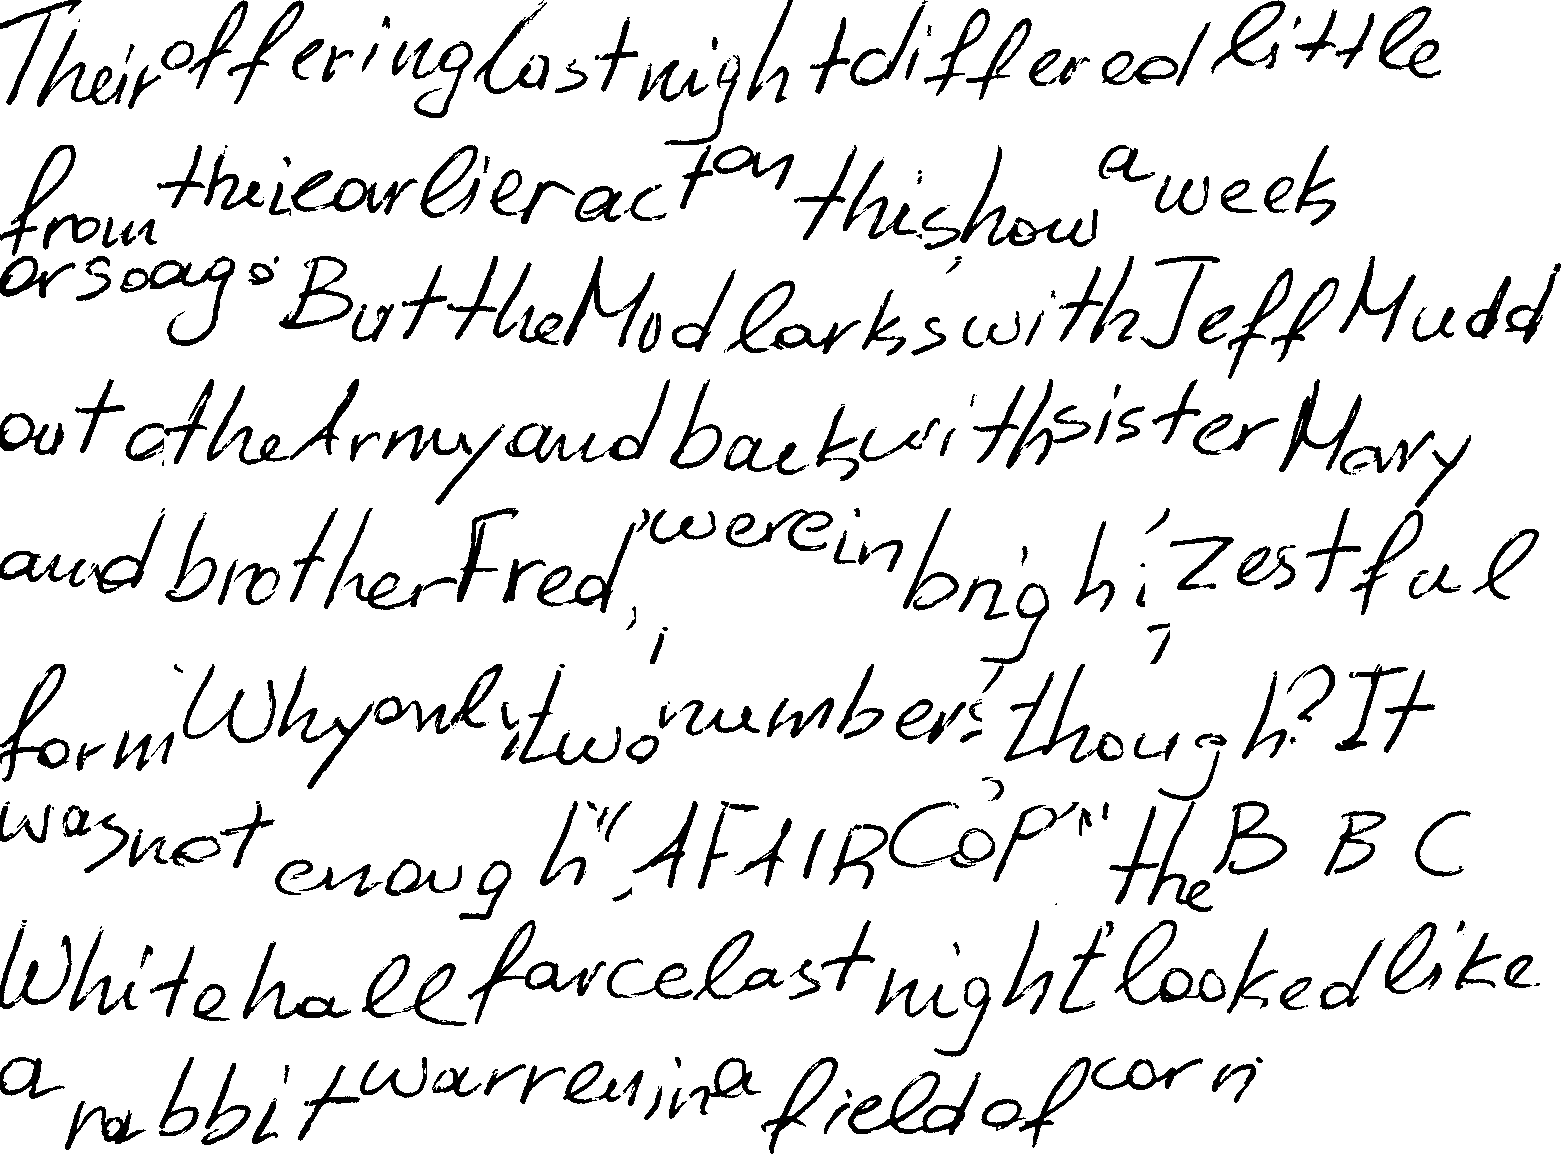 Their offering last night differed little
from their earlier act on this show a week
or so ago. But the Mudlarks, with Jeff Mudd
out of the Army and back with sister Mary
and brother Fred, were in bright, zestful
form. Why only two numbers, though? It
was not enough. "A FAIR COP" the B B C
Whitehall farce last night looked like
a rabbit warren in a field of corn